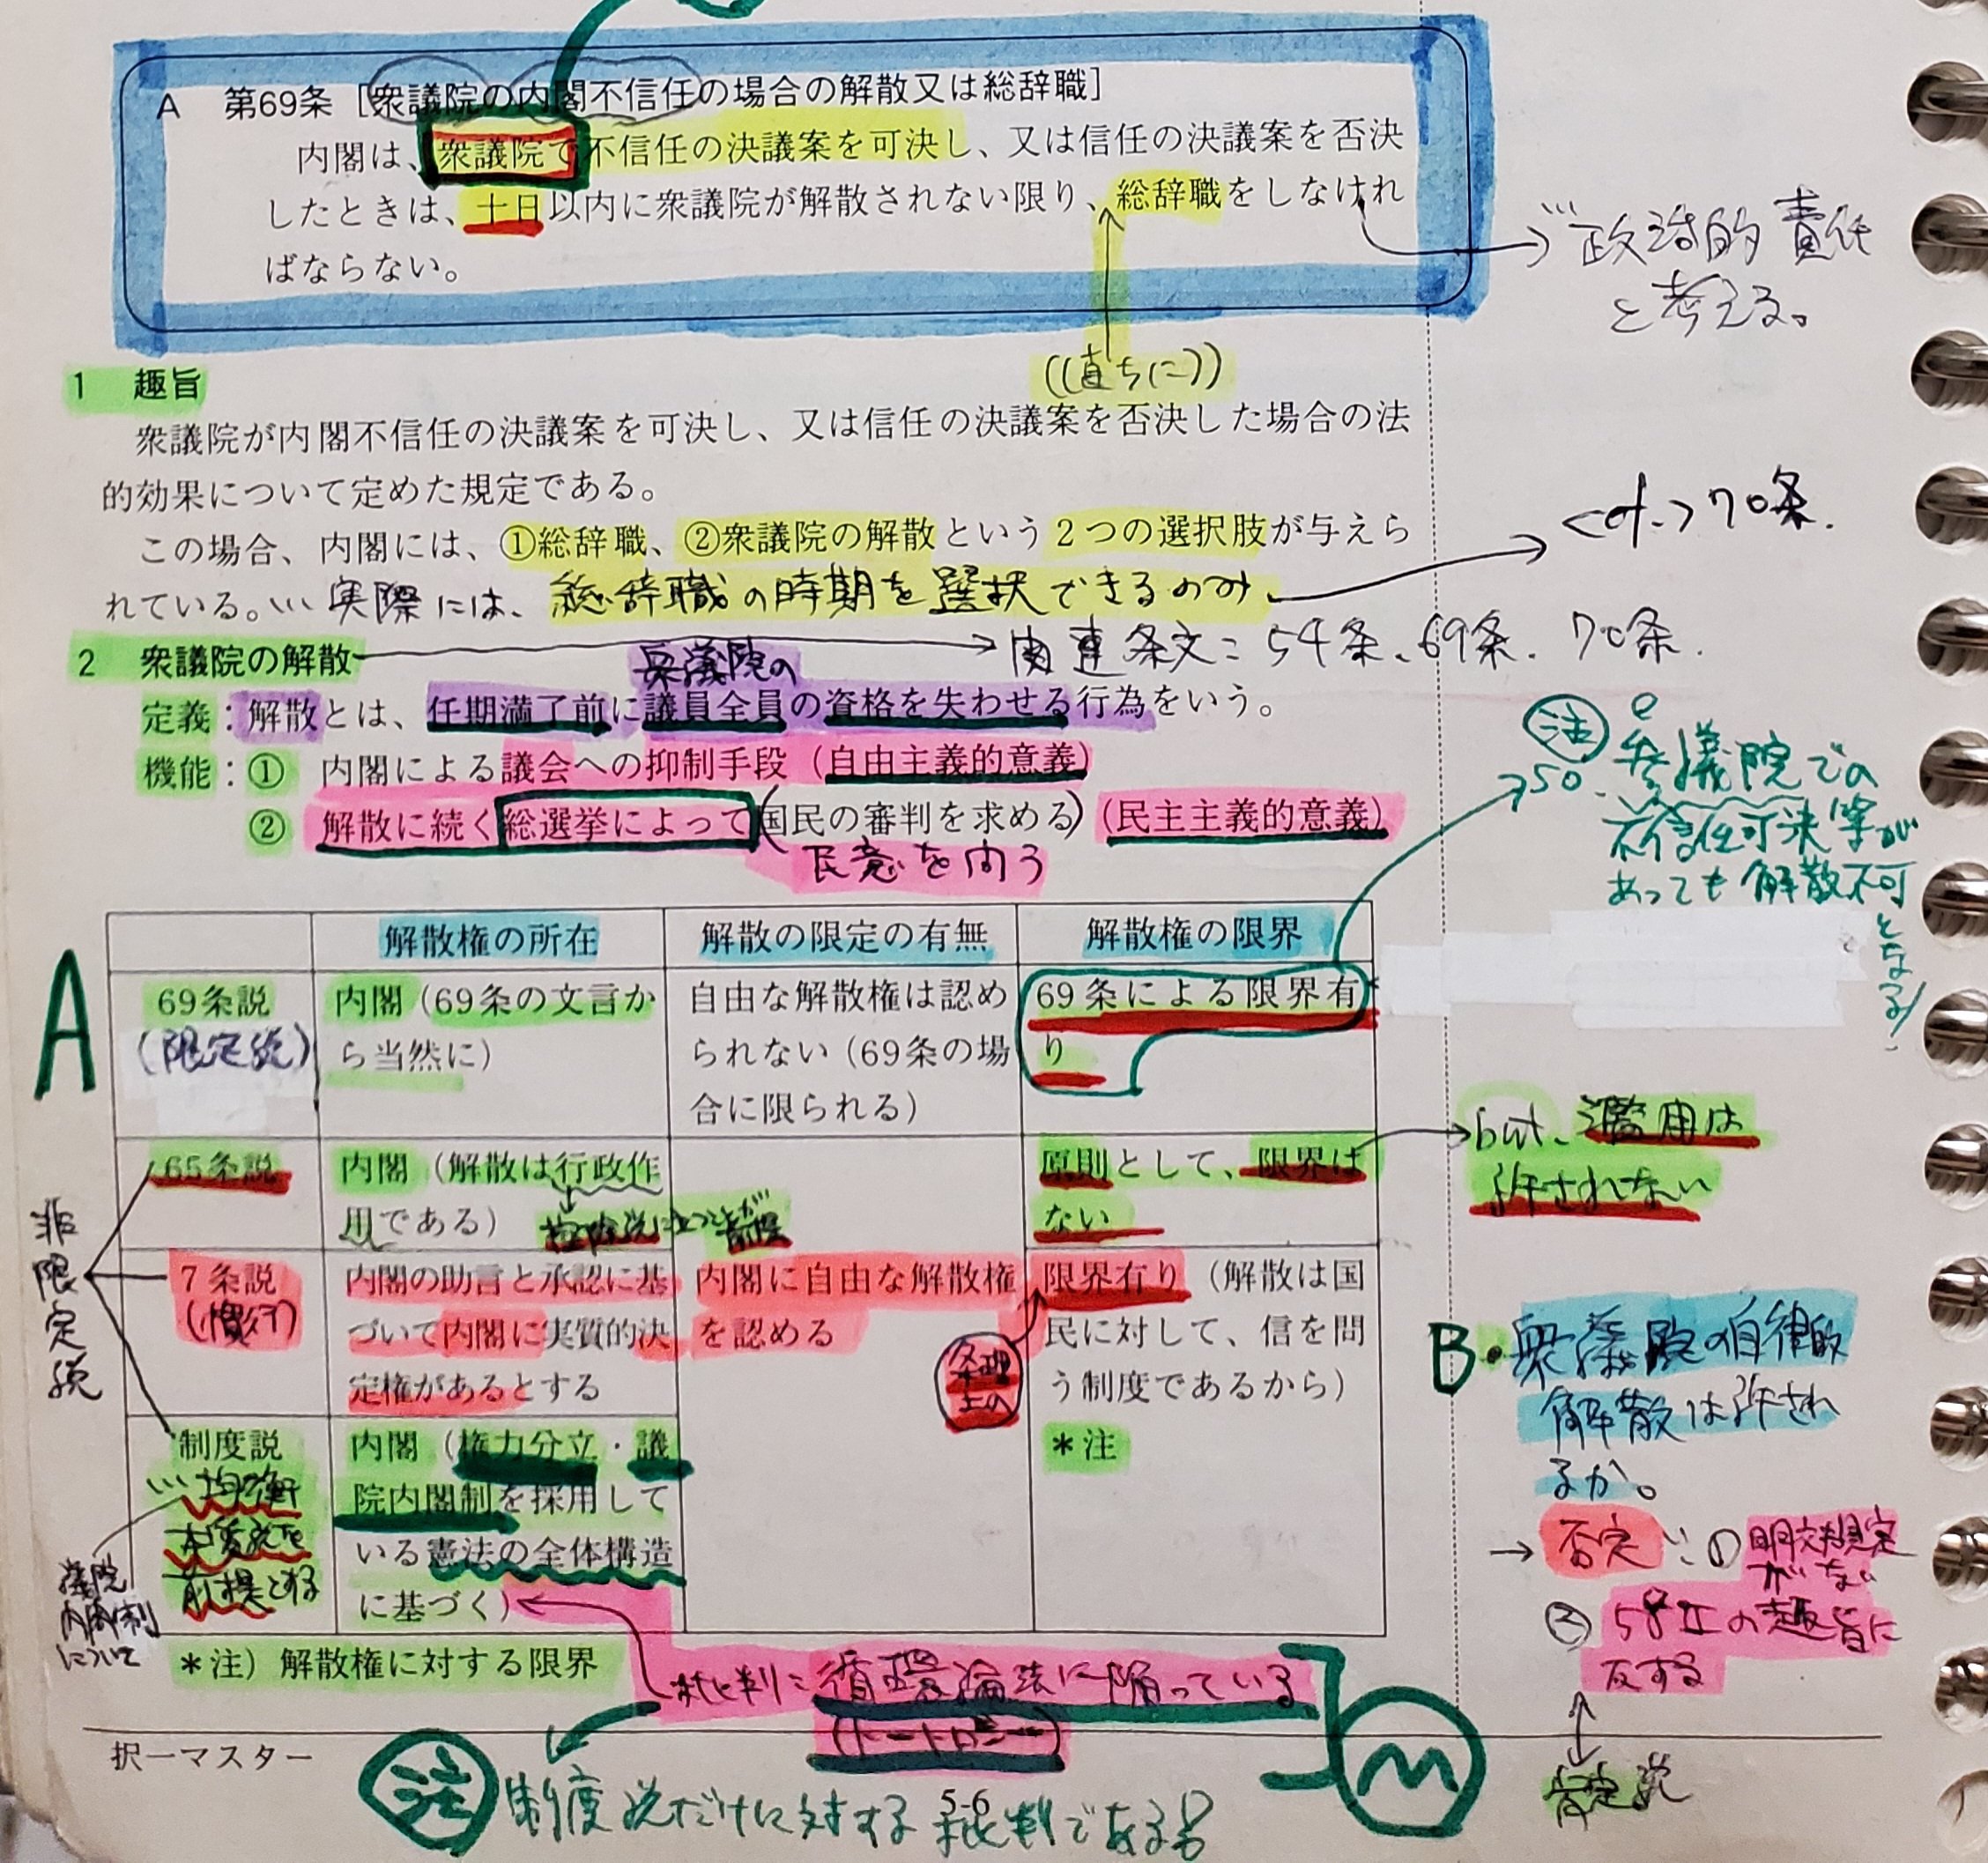 A 第69条[衆議院の内閣不信任の場合の解散又は総辞職]
内閣は、衆議院で不信任の決議案を可決し、又は信任の決議案を否決
したときは、十日以内に衆議院が解散されない限り、総辞職をしなけれ
ばならない。
政治的責任
と考える。
((直ちに))
1 趣旨
衆議院が内閣不信任の決議案を可決し、又は信任の決議案を否決した場合の法
的効果について定めた規定である。
この場合、内閣には、①総辞職、②衆議院の解散という2つの選択肢が与えら
れている。∵ 実際には、総辞職の時期を選択できるのみ
<cf.>70条.
2 衆議院の解散
関連条文:54条、69条、70条.
衆議院の
定義:解散とは、任期満了前に議員全員の資格を失わせる行為をいう。
機能:① 内閣による議会への抑制手段(自由主義的意義)
② 解散に続く総選挙によって(国民の審判を求める)(民主主義的意義)
民意を問う
注
so. 参議院での
不信任可決等が
あっても解散不可
となる!
A
解散権の所在 解散の限定の有無 解散権の限界
69条説
(限定説)
内閣(69条の文言か
ら当然に)
自由な解散権は認め
られない(69条の場
合に限られる)
69条による限界有
り
非限定説
65条説
内閣(解散は行政作
用である)
控除説に立つことが前提
原則として、限界は
ない
but、濫用は
許されない
7条説
(慣行)
内閣の助言と承認に基
づいて内閣に実質的決
定権があるとする
内閣に自由な解散権
を認める
条理
上の
限界有り(解散は国
民に対して、信を問
う制度であるから)
*注
制度説
∵均衡
本質説を
前提とする
議院
内閣制
について
内閣(権力分立・議
院内閣制を採用して
いる憲法の全体構造
に基づく)
B・衆議院の自律的
解散は許され
るか。
→ 否定 ∵①明文規定
がない
② の趣旨に
反する
肯定説
*注)解散権に対する限界
批判:循環論法に陥っている
(トートロジー)
M
択一マスター
注 制度説だけに対する批判である!
5-6